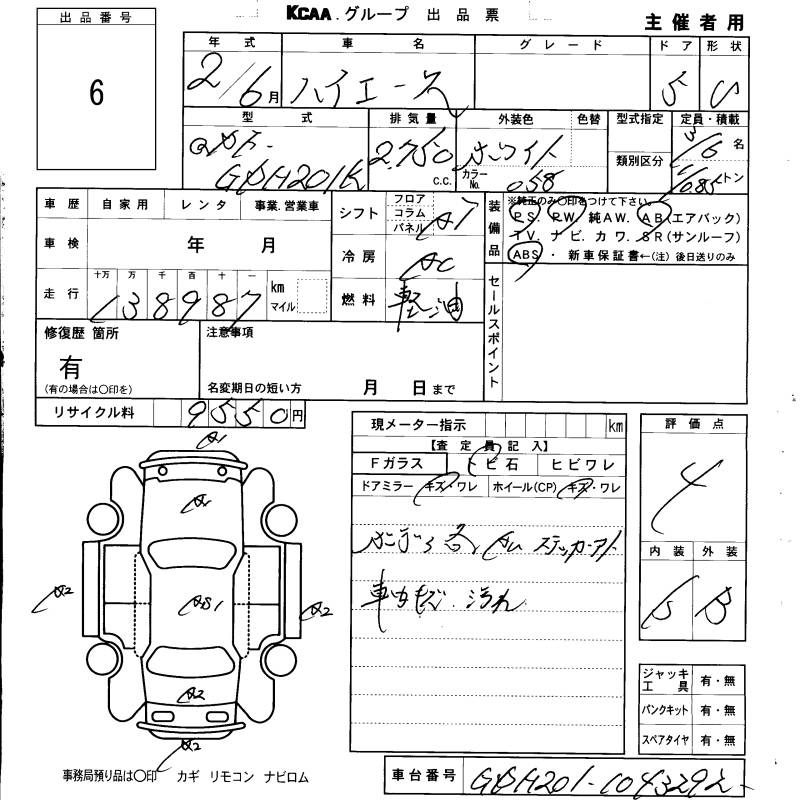 KCAA.グループ 出品票
主催者用
出品番号
6
年式 車名 グレード ドア 形状
2/6月 ハイエース 5
型式 排気量 外装色 色替 型式指定 定員・積載
GDH201K 2.750 c.c. ホワイト カラーNo. 058 類別区分 3/6名 トン
車歴 自家用 レンタ 事業.営業車
車検 年 月
走行 十万 万 千 百 十 一 km マイル
138987
シフト フロア コラム パネル AT
冷房 AC
燃料 軽油
装備品 ※純正のみ〇印をつけて下さい。
P.S. P.W. 純A.W. A.B.(エアバック)
T.V. ナビ. カワ. S.R(サンルーフ)
ABS ・ 新車保証書←(注) 後日送りのみ
セールスポイント
修復歴 箇所
有
(有の場合は〇印を)
注意事項
名変期日の短い方 月 日まで
リサイクル料 9550円
現メーター指示 km
【査定員記入】
Fガラス トビ石 ヒビワレ
ドアミラー キズ・ワレ ホイール(CP) キズ・ワレ
ステッカーアト
車内キズ. 汚れ
評価点
4
内装 外装
B
A1
A2
A2
A2
A2
ジャッキ工具 有・無
パンクキット 有・無
スペアタイヤ 有・無
事務局預り品は〇印 カギ リモコン ナビロム
車台番号 GDH201-1043292